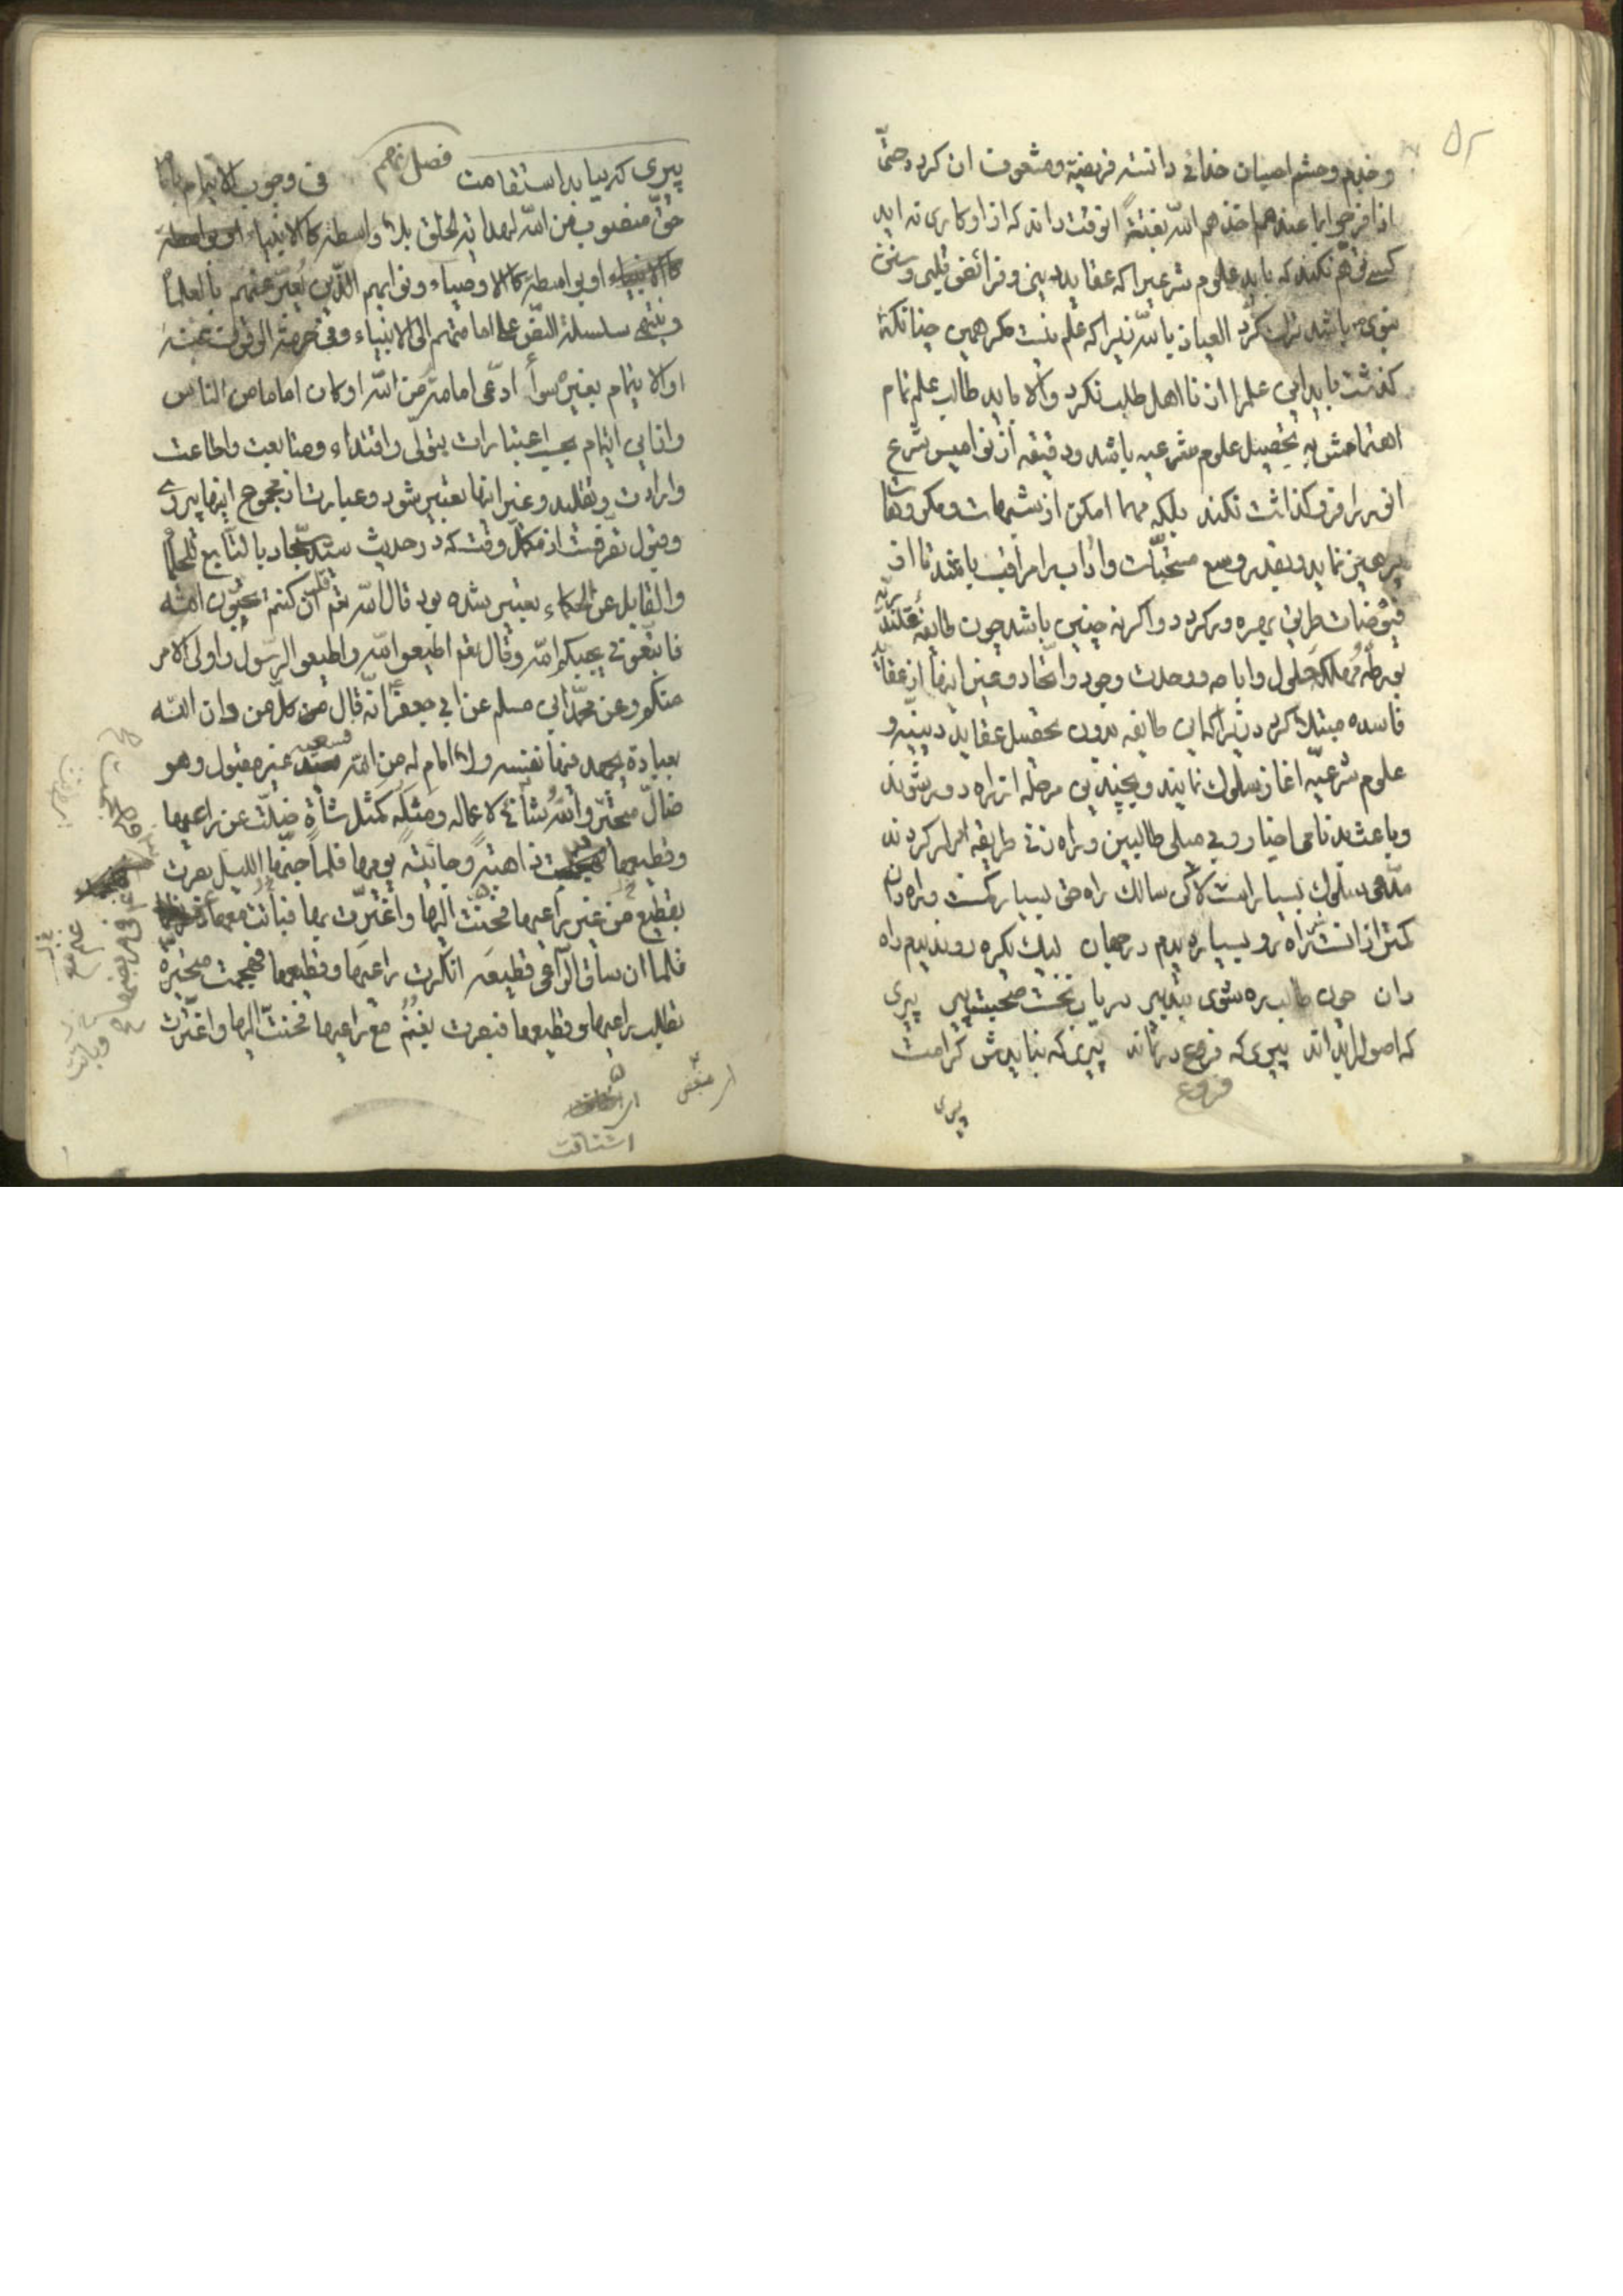 ۵۲
و خدم و حشم اصیان خدائی دانسته فریضه و مشعوف ان کردد حتی
اذا فرحوا بما عندهم اخذهم الله بغتةً انوقت داند که از او کاری نه اید
کسی فهم نکند که باید علوم شرعیرا که عقاید دینی و فرائض قلبی و سنن
نبوی باشد ترک کرد العیاذ بالله زیرا که علم نیست مکر همین چنانکه
کذشت باید این علمرا از نا اهل طلب نکرد والا باید طالب علم تمام
اهتمامش به تحصیل علوم شرعیه باشد و دقیقه از نوامیس شرع
انور را فروکذاشت نکند بلکه مهما امکن از شبهات و مکروهات
پرهیز نماید و بقدر وسع مستحبات و اداب را مراقب باشد تا از
فیوضات طریق بهره ور کردد و اکر نه چنین باشد چون طایفه قلندریه
بورطه مهلکه حلول و اباحه و وحدت وجود و اتحاد و غیر اینها از عقاید
فاسده مبتلا کردد زیرا که این طایفه بدون تحصیل عقاید دینیه و
علوم شرعیه اغاز سلوک نمایند و بچندین مرحله از راه دور شوند
و باعث بدنامی اخیار و بی میلی طالبین و راه زنی طریقه ابرار کردند
مدعی سلوک بسیار است لاکن سالک راه حق بسیار کمست و راه دان
کمتر از انست راه رو بسیار دیدم در جهان لیک یکره رو ندیدم راه
دان چون طالب ره شوی بتدبیر دریاب نخست صحبت پیر پیری
که اصول را بداند پیری که فروع در نماند پیری که نبایدش کرامت
فروع
پیری
پیری که بیابد استقامت فصل نهم فی وجوب الایتمام بامام
حق منصوب من الله لهدایة الخلق بلا واسطة کالانبیاء او بواسطة
کالانبیاء او بواسطة کالاوصیاء و نوابهم الذین یُعبّر عنهم بالعلماء
و ینتهی سلسلة النص علی امامتهم الی الانبیاء و فی حرمة التوقف عنه
او الایتمام بغیره سواءً ادّعی امامةً من الله او کان اماما من الناس
و این ایتمام بحسب اعتبارات بتولّی و اقتداء و متابعت و اطاعت
و ارادت و تقلید و غیر اینها تعبیر شود و عبارت از مجموع اینها پیروی
و قبول تصرفت از مکمل وقت که در حدیث سید سجاد بالتابع للحلماء
و القابل عن الحکماء تعبیر شده بود قال الله تعم قل ان کنتم تحبون الله
فاتبعونی یحببکم الله و قال تعم اطیعو الله و اطیعو الرسول و اولی الامر
منکم و عن محمد ابن مسلم عن ابی جعفر انه قال من کل من دان الله
بعبادة یجهد فیها نفسه و لا امام له من الله فسعیه غیر مقبول و هو
ضالّ متحیر و الله شانئ لاعماله و مثله کمثل شاة ضلّت عن راعیها
و قطیعها ذاهبة و جائیة یومها فلما جنّها اللیل بصرت
بقطیع من غیر راعیها فحنّت الیها و اغترّت بها فباتت معها
فلما ان ساق الراعی قطیعه انکرت راعیها و قطیعها فهجمت متحیرة
تطلب راعیها و قطیعها فبصرت بغنم مع راعیها فحنّت الیها و اغترّت
اشتاقت